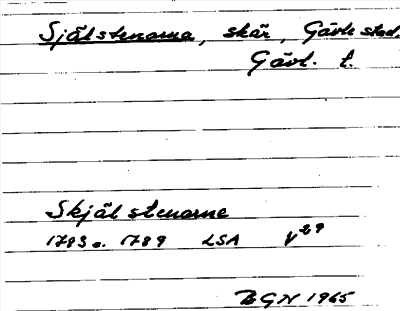 Själstenarna, skär, Gävle stad,
Gävl. t.
Skjälstenarne
1783 o. 1789 LSA V29
BGN 1965